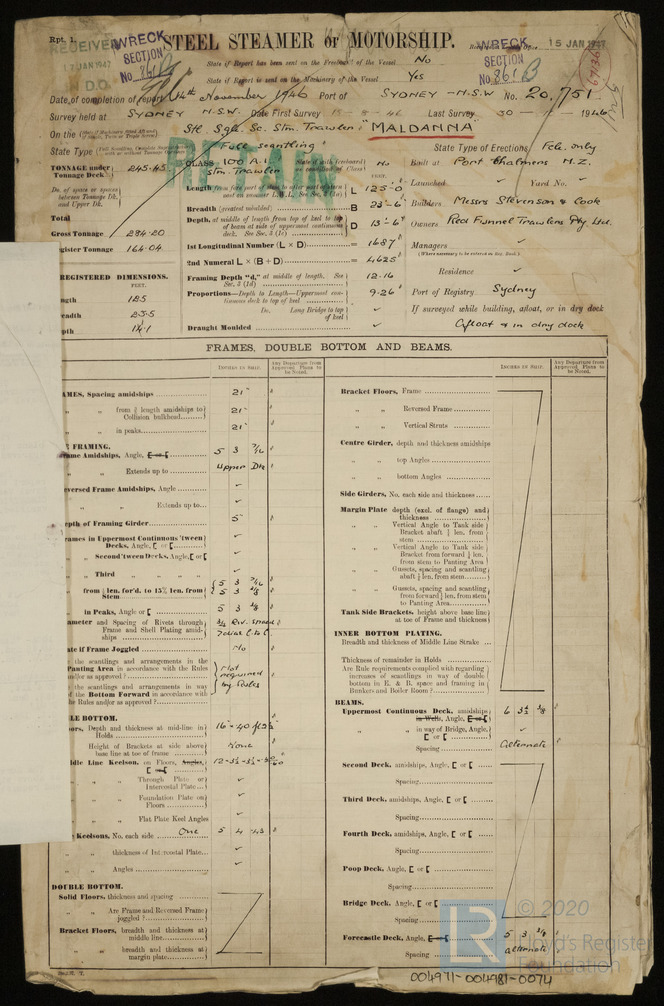 Rpt. 1.
RECEIVED
17 JAN 1947
D.O.
WRECK SECTION
No 861 B
STEEL STEAMER or MOTORSHIP.
15 JAN 1947
WRECK SECTION
No 861 B
State if Report has been sent on the Freeboard of the Vessel No
State if Report is sent on the Machinery of the Vessel Yes
Date of completion of report 14th November 1946 Port of SYDNEY - N.S.W No. 20,751
Survey held at SYDNEY N.S.W. Date First Survey 15 - 8 - 46 Last Survey 1946
On the Stl. Sgle. Sc. Stm. Trawler "MALDANNA"
State Type Full scantling State Type of Erections Fcle. only
TONNAGE under Tonnage Deck 245.45
CLASS 100 A.1. Stm. Trawler
No
Built at Port Chalmers N.Z.
Do. of space or spaces between Tonnage Dk. and Upper Dk.
Launched Yard No.
Length L 125-0
Breadth (greatest moulded) B 23-6
Builders Messrs Stevenson & Cook
Total
Depth, at middle of length from top of keel to top of beam at side of uppermost continuous deck. See Sec. 3 (1c) D 13-6
Owners Red Funnel Trawlers Pty Ltd.
Gross Tonnage 284.20
1st Longitudinal Number (L × D) = 1687
Managers
(Where necessary to be entered in Reg. Book.)
Register Tonnage 164.04
2nd Numeral L × (B + D) = 4625
Residence
REGISTERED DIMENSIONS.
FEET.
Framing Depth "d," at middle of length. See Sec. 3 (1d) 12.16
Port of Registry Sydney
ngth 125
Proportions—Depth to Length—Uppermost continuous deck to top of keel 9.26
If surveyed while building, afloat, or in dry dock
Afloat & in dry dock
eadth 23.5
Do. Long Bridge to top of keel
epth
Draught Moulded
FRAMES, DOUBLE BOTTOM AND BEAMS.
INCHES IN SHIP.
Any Departure from Approved Plans to be Noted.
INCHES IN SHIP.
Any Departure from Approved Plans to be Noted.
AMES, Spacing amidships 21"
" " from ⅗ length amidships to Collision bulkhead 21"
" " in peaks 21"
E FRAMING.
rame Amidships, Angle, [ or [ 5 3 7/16
" " Extends up to Upper Dk
eversed Frame Amidships, Angle
" " Extends up to
epth of Framing Girder 5"
rames in Uppermost Continuous 'tween Decks, Angle, [ or [
" " Second 'tween Decks, Angle, [ or [
" " Third " " "
" " from ⅗ len. for'd. to 15% len. from Stem 5 3 7/16
5 3 3/8
" " in Peaks, Angle or [ 5 3 3/8
ameter and Spacing of Rivets through Frame and Shell Plating amidships 3/4 Riv. spaced 7 dias C to C
ate if Frame Joggled No
the scantlings and arrangements in the Panting Area in accordance with the Rules and/or as approved ?
the scantlings and arrangements in way of the Bottom Forward in accordance with the Rules and/or as approved ?
Not required by Rules
LE BOTTOM.
oors, Depth and thickness at mid-line in Holds
Height of Brackets at side above base line at toe of frame None
ddle Line Keelson, on Floors, Angles, [ or [
" " Through Plate or Intercostal Plate
" " Foundation Plate on Floors
" " Flat Plate Keel Angles
Keelsons, No. each side One 5 4 .43
" " thickness of Intercostal Plate
" " Angles
DOUBLE BOTTOM.
Solid Floors, thickness and spacing
" " Are Frame and Reversed Frame joggled ?
Bracket Floors, breadth and thickness at middle line
" " breadth and thickness at margin plate
Bracket Floors, Frame
" " Reversed Frame
" " Vertical Struts
Centre Girder, depth and thickness amidships
" " top Angles
" " bottom Angles
Side Girders, No. each side and thickness
Margin Plate depth (excl. of flange) and thickness
" " Vertical Angle to Tank side Bracket abaft ¼ len. from stem
" " Vertical Angle to Tank side Bracket from forward ¼ len. from stem to Panting Area
" " Gussets, spacing and scantling abaft ¼ len. from stem
" " Gussets, spacing and scantling from forward ¼ len. from stem to Panting Area
Tank Side Brackets, height above base line at toe of Frame and thickness
INNER BOTTOM PLATING.
Breadth and thickness of Middle Line Strake
Thickness of remainder in Holds
Are Rule requirements complied with regarding increases of scantlings in way of double bottom in E. & B. space and framing in Bunkers and Boiler Room ?
BEAMS.
Uppermost Continuous Deck, amidships in Wells, Angle, [ or [ 6 3½ 3/8
" " in way of Bridge, Angle, [ or [
Spacing Alternate
Second Deck, amidships, Angle, [ or [
Spacing
Third Deck, amidships, Angle, [ or [
Spacing
Fourth Deck, amidships, Angle, [ or [
Spacing
Poop Deck, Angle, [ or [
Spacing
Bridge Deck, Angle, [ or [
Spacing
Forecastle Deck, Angle, [ or [ 5 3 3/8
Spacing alternate
© 2020
LR
Lloyd's Register Foundation
004971-004981-0074